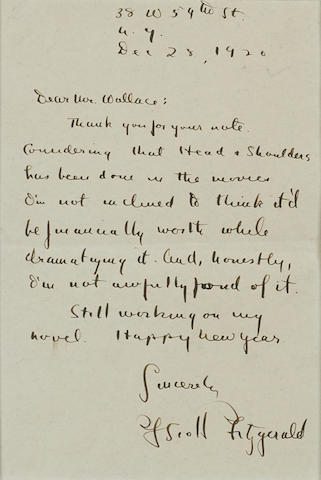 38 W 59th St.
N.Y.
Dec 28, 1920
Dear Mr. Wallace:
Thank you for your note.
Considering that Head & Shoulders
has been done in the movies
I'm not inclined to think it'd
be financially worth while
dramatizing it. And, honestly,
I'm not awfully fond of it.
Still working on my
novel. Happy New Year
Sincerely
F Scott Fitzgerald